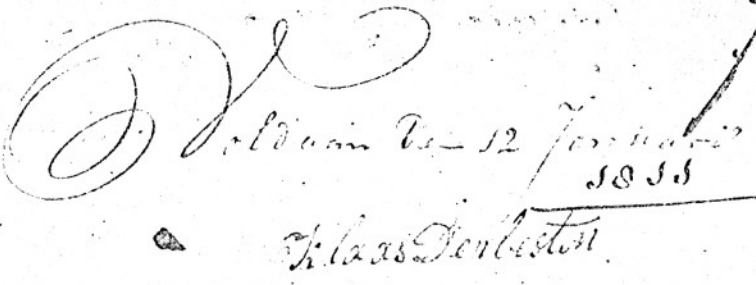 Voldaan den 12 Januarii
1811
Klaas Denbesten